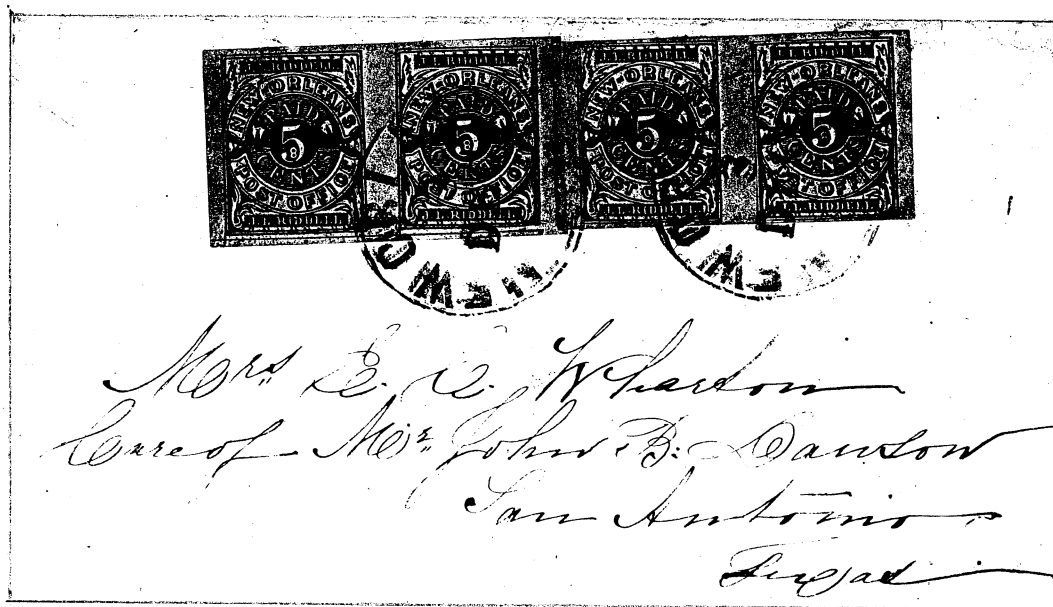 NEW-ORLEANS
PAID
5
CENTS
POST OFFICE
J.L. RIDDELL
NEW-ORLEANS
PAID
5
CENTS
POST OFFICE
J.L. RIDDELL
NEW-ORLEANS
PAID
5
CENTS
POST OFFICE
J.L. RIDDELL
NEW-ORLEANS
PAID
5
CENTS
POST OFFICE
J.L. RIDDELL
NEW
NEW
Mrs E. C. Wharton
Care of Mr John B. Dawson
San Antonio
Texas